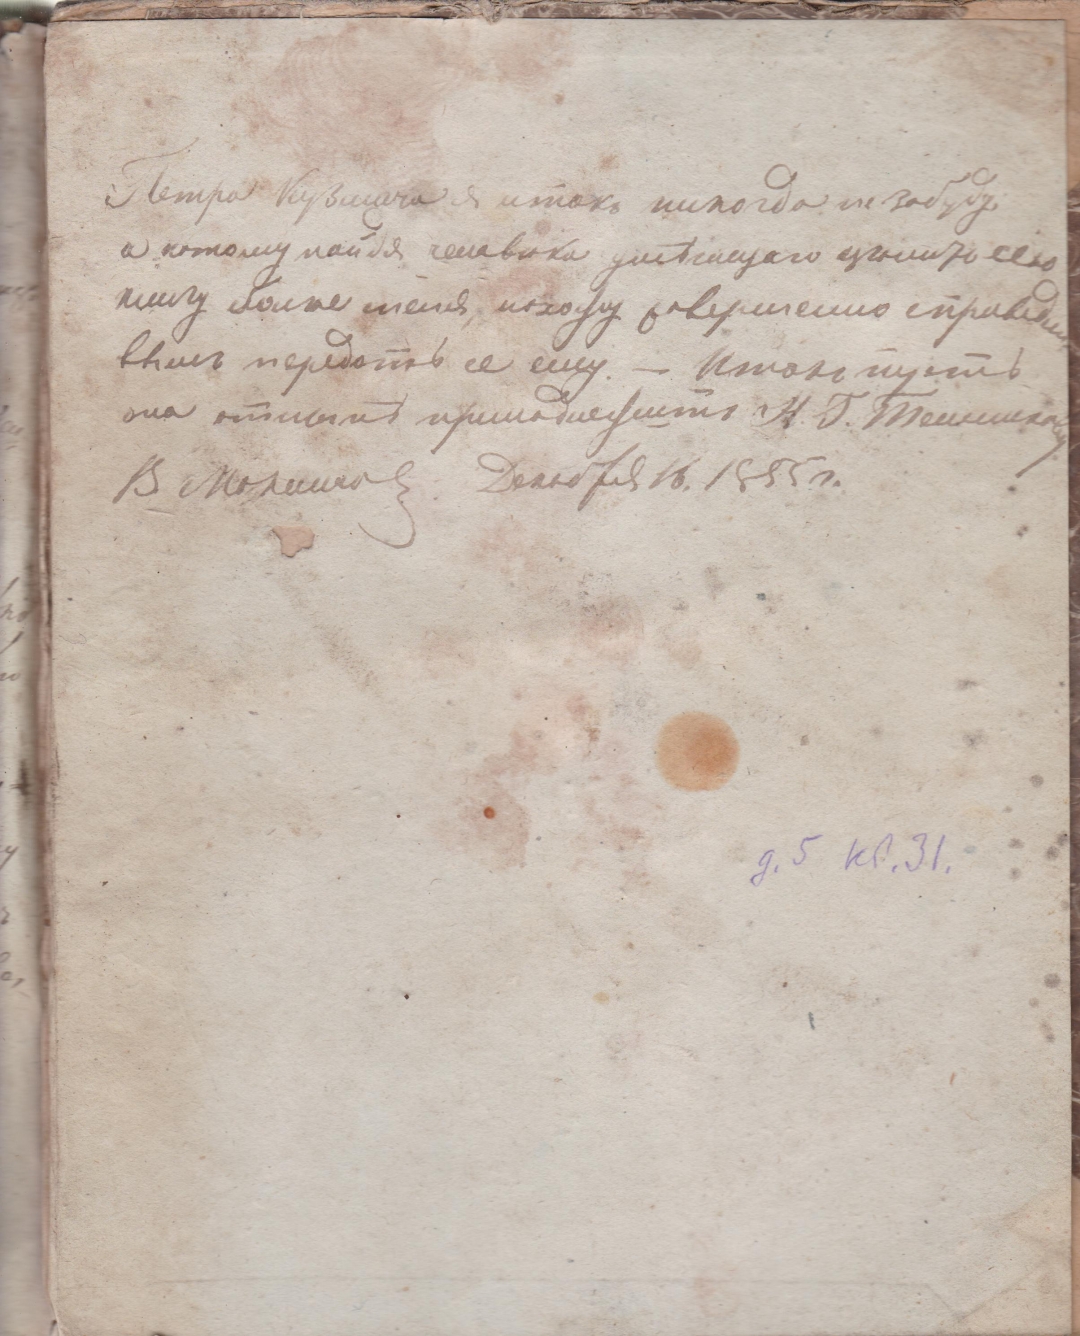 Петра Кузмича я и такъ никогда не забуду,
а потому найдя человѣка умѣющаго цѣнить сею
книгу болѣе меня, нахожу совершенно справедли
вымъ передать ее ему. — Итакъ пусть
она отнынѣ принадлежитъ Н. Г.
В Декабря 16. 1885 г.
д. 5 кв. 31.